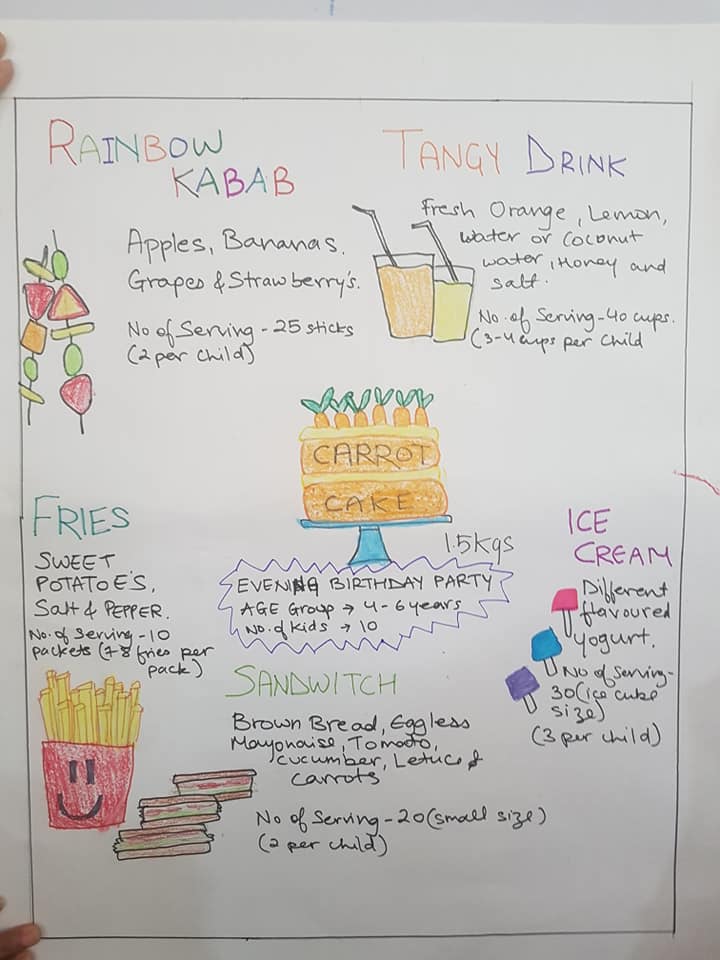 RAINBOW
KABAB
Apples, Bananas.
Grapes & Strawberry's.
No of Serving - 25 sticks
(2 per child)
TANGY DRINK
Fresh Orange, Lemon,
water or Coconut
water, Honey and
salt.
No. of Serving - 40 cups.
(3-4 cups per child
CARROT
CAKE
1.5kgs
EVENING BIRTHDAY PARTY
AGE Group → 4-6 years
No. of Kids → 10
FRIES
SWEET
POTATOE'S,
Salt & PEPPER.
No. of Serving - 10
packets (7-8 fries per
pack)
ICE
CREAM
Different
flavoured
yogurt.
No of Serving-
30 (ice cube
size)
(3 per child)
SANDWITCH
Brown Bread, Eggless
Mayonaise, Tomato,
cucumber, Letuce &
carrots
No of Serving - 20 (small size)
(2 per child)